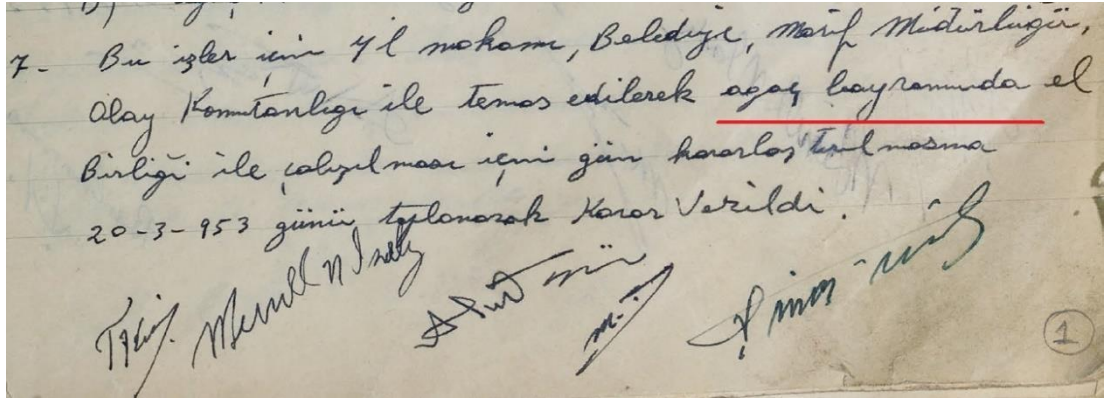 7- Bu işler için Yl makamı, Belediye, Marif Müdürlügü,
Alay Komutanlıgı ile temas edilerek agaç bayramında el
Birliği ile çalışılması için gün kararlaştırılmasına
20-3-953 günü toplanarak Karar Verildi.
1